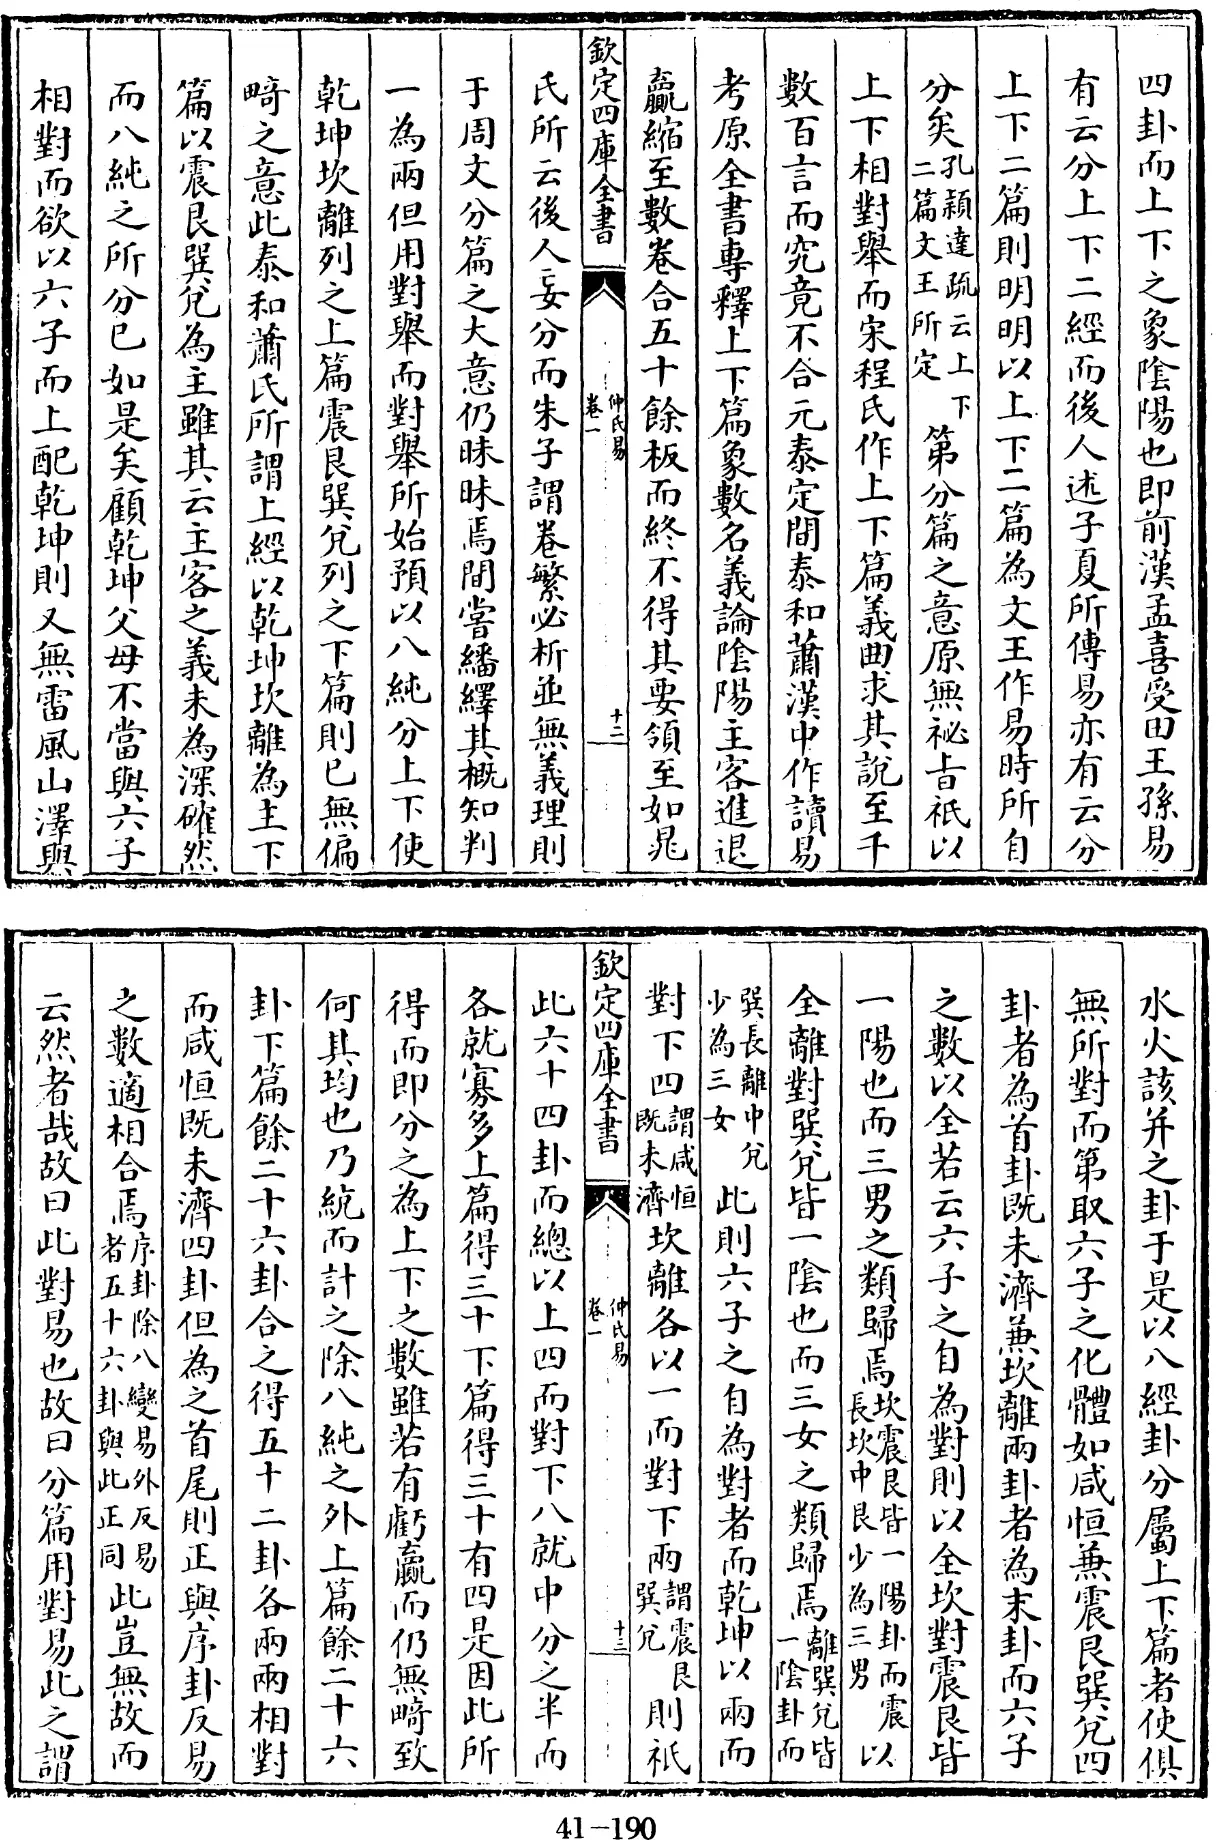 四卦而上下之象陰陽也即前漢孟喜受田王孫易
有云分上下二經而後人述子夏所傳易亦有云分
上下二篇則明明以上下二篇為文王作易時所自
分矣孔穎達疏云上下二篇文王所定第分篇之意原無祕旨祇以
上下相對舉而宋程氏作上下篇義曲求其說至千
數百言而究竟不合元泰定間泰和蕭漢中作讀易
考原全書專釋上下篇象數名義論陰陽主客進退
贏縮至數卷合五十餘板而終不得其要領至如晁
欽定四庫全書
仲氏易
卷一
十二
氏所云後人妄分而朱子謂卷繁必析並無義理則
于周文分篇之大意仍昧昧焉間嘗繙繹其概知判
一為兩但用對舉而對舉所始預以八純分上下使
乾坤坎離列之上篇震艮巽兌列之下篇則已無偏
畸之意此泰和蕭氏所謂上經以乾坤坎離為主下
篇以震艮巽兌為主雖其云主客之義未為深確然
而八純之所分已如是矣顧乾坤父母不當與六子
相對而欲以六子而上配乾坤則又無雷風山澤與
水火該并之卦于是以八經卦分屬上下篇者使俱
無所對而第取六子之化體如咸恒兼震艮巽兌四
卦者為首卦既未濟兼坎離兩卦者為末卦而六子
之數以全若云六子之自為對則以全坎對震艮皆
一陽也而三男之類歸焉坎震艮皆一陽卦而震長坎中艮少為三男以
全離對巽兌皆一陰也而三女之類歸焉離巽兌皆一陰卦而
巽長離中兌少為三女此則六子之自為對者而乾坤以兩而
對下四謂咸恒既未濟坎離各以一而對下兩謂震艮巽兌則祇
欽定四庫全書
仲氏易
卷一
十三
此六十四卦而總以上四而對下八就中分之半而
各就寡多上篇得三十下篇得三十有四是因此所
得而即分之為上下之數雖若有虧贏而仍無畸致
何其均也乃統而計之除八純之外上篇餘二十六
卦下篇餘二十六卦合之得五十二卦各兩兩相對
而咸恒既未濟四卦但為之首尾則正與序卦反易
之數適相合焉序卦除八變易外反易者五十六卦與此正同此豈無故而
云然者哉故曰此對易也故曰分篇用對易此之謂
41-190